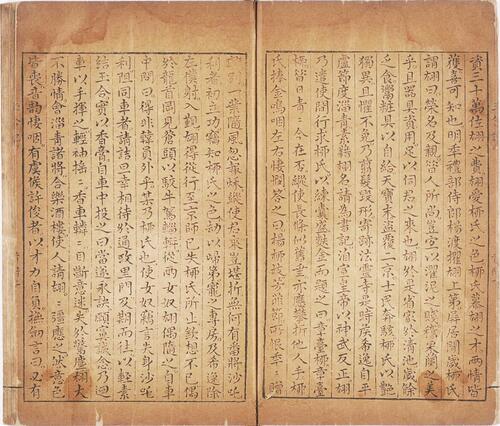 資三十萬佐翃之費翃愛柳氏之色柳氏慕翃之才兩情皆
獲喜可知也明年禮部侍郎楊渡擢翃上第屏居間歲柳氏
謂翃曰榮名及親昔人所尚豈宜以濯浣之賤稽採蘭之美
乎且用器資用足以伺君之來也翃於是省家於清池歲餘
乏食鬻粧具以自給天寶末盜覆二京士女奔駭柳氏以艷
獨異且懼不免乃剪髮毀形寄跡法靈寺是時侯希逸自平
盧節度淄青素藉翃名請為書記洎宣皇帝以神武反正翃
乃遣使間行求柳氏以練囊盛麩金而題之曰章臺柳章臺
柳昔日青〻今在否縱使長條似舊垂亦應攀折他人手柳
氏捧金嗚咽左右悽憫答之曰楊柳枝芳菲節所恨年〻贈
離別一葉隨風忽報秋縱使君來豈堪折無何有蕃將沙吒
利者初立功竊知柳氏之色劫以歸第寵之專房及希逸除
左僕射入覲翃得從行至京師已失柳氏所止歎想不已偶
於龍首岡見蒼頭以駮牛駕輜軿從兩女奴翃偶隨之自車
中問曰得非韓員外乎某乃柳氏也使女奴竊言失身沙吒
利阻同車者請詰旦幸相待於道政里門及期而往以輕素
結玉合實以香膏自車中投之曰當遂永訣願寘誠念乃迴
車以手揮之輕袖搖〻香車轔〻目斷意迷失於驚塵翃大
不勝情會淄青諸將合樂酒樓使人請翃〻强應之然意色
皆喪音韵悽咽有虞候許俊者以才力自負撫劍言曰必有